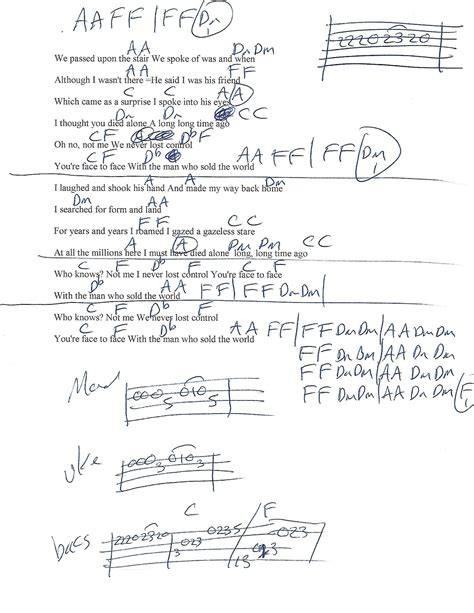 AAFF | FF Dm 1
2220 2320
AA Dm Dm
We passed upon the stair We spoke of was and when
AA FF
Although I wasn't there =He said I was his friend
C C A A
Which came as a surprise I spoke into his eyes
Dm Dm CC
I thought you died alone A long long time ago
CF Db F
Oh no, not me We never lost control
C F Db AA FF | FF Dm 1
You're face to face With the man who sold the world
A A
I laughed and shook his hand And made my way back home
Dm AA
I searched for form and land
FF CC
For years and years I roamed I gazed a gazeless stare
A A Dm Dm CC
At all the millions here I must have died alone long, long time ago
C F Db F
Who knows? Not me I never lost control You're face to face
Db AA FF | FF Dm Dm |
With the man who sold the world
C F Db F
Who knows? Not me We never lost control
C F Db AA FF | FF Dm Dm | AA Dm Dm
You're face to face With the man who sold the world
FF Dm Dm | AA Dm Dm
FF Dm Dm | AA Dm Dm
FF Dm Dm | AA Dm Dm | F 1
0005 0105
uke
0003 0103
C F
bass
2220 2320 3 023 0235 023